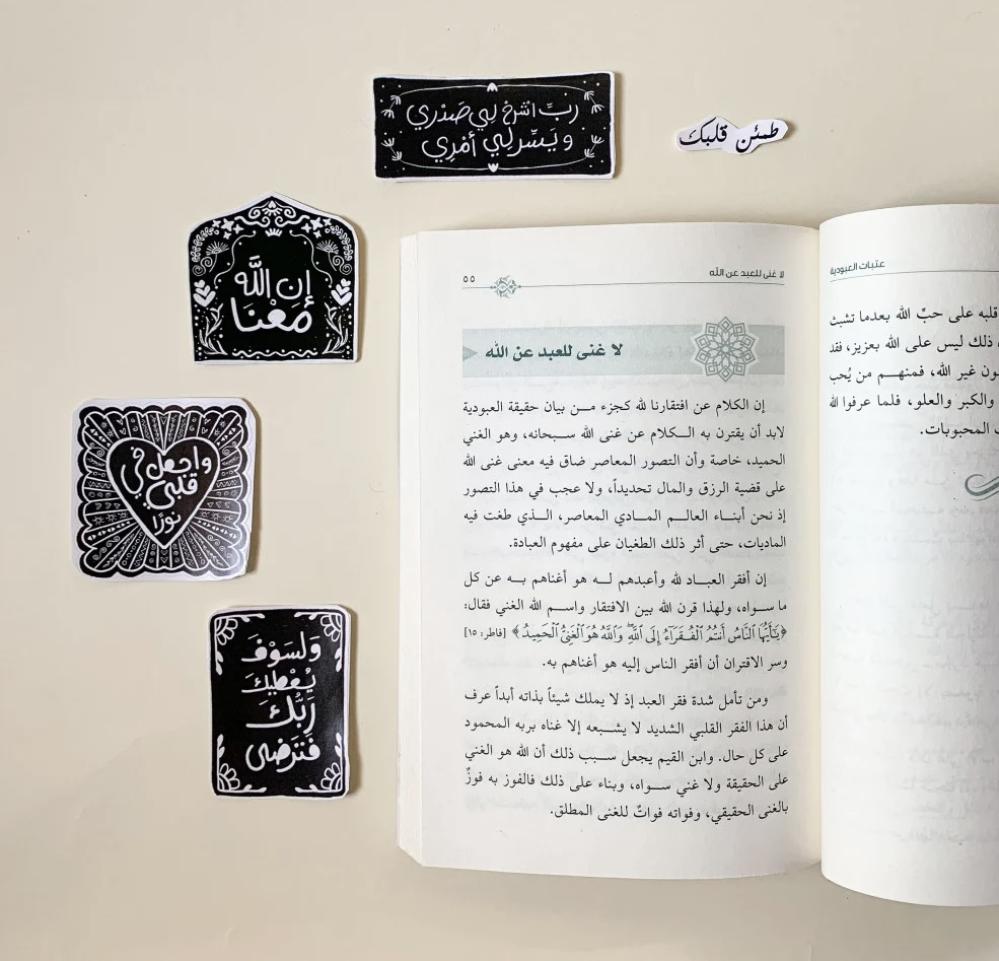 رَبِّ اشْرَحْ لِي صَدْرِي
وَيَسِّرْ لِي أَمْرِي
طمئن قلبك
إن اللَّه
مَعْنَا
واجعل في
قلبي
نورًا
وَلَسَوْفَ
يُعْطِيكَ
رَبُّكَ
فَتَرْضَى
عتبات العبودية
قلبه على حبِّ الله بعدما تشبث
ذلك ليس على الله بعزيز، فقد
غير الله، فمنهم من يُحب
والكبر والعلو، فلما عرفوا الله
المحبوبات.
لا غنى للعبد عن الله
٥٥
لا غنى للعبد عن الله
إن الكلام عن افتقارنا لله كجزء من بيان حقيقة العبودية
لابد أن يقترن به الكلام عن غنى الله سبحانه، وهو الغني
الحميد، خاصة وأن التصور المعاصر ضاق فيه معنى غنى الله
على قضية الرزق والمال تحديداً، ولا عجب في هذا التصور
إذ نحن أبناء العالم المادي المعاصر، الذي طغت فيه
الماديات، حتى أثر ذلك الطغيان على مفهوم العبادة.
إن أفقر العباد لله وأعبدهم له هو أغناهم به عن كل
ما سواه، ولهذا قرن الله بين الافتقار واسم الله الغني فقال:
﴿يَٰٓأَيُّهَا ٱلنَّاسُ أَنتُمُ ٱلْفُقَرَآءُ إِلَى ٱللَّهِ وَٱللَّهُ هُوَ ٱلْغَنِىُّ ٱلْحَمِيدُ﴾ [فاطر: ١٥]
وسر الاقتران أن أفقر الناس إليه هو أغناهم به.
ومن تأمل شدة فقر العبد إذ لا يملك شيئاً بذاته أبداً عرف
أن هذا الفقر القلبي الشديد لا يشبعه إلا غناه بربه المحمود
على كل حال. وابن القيم يجعل سبب ذلك أن الله هو الغني
على الحقيقة ولا غني سواه، وبناء على ذلك فالفوز به فوزٌ
بالغنى الحقيقي، وفواته فواتٌ للغنى المطلق.